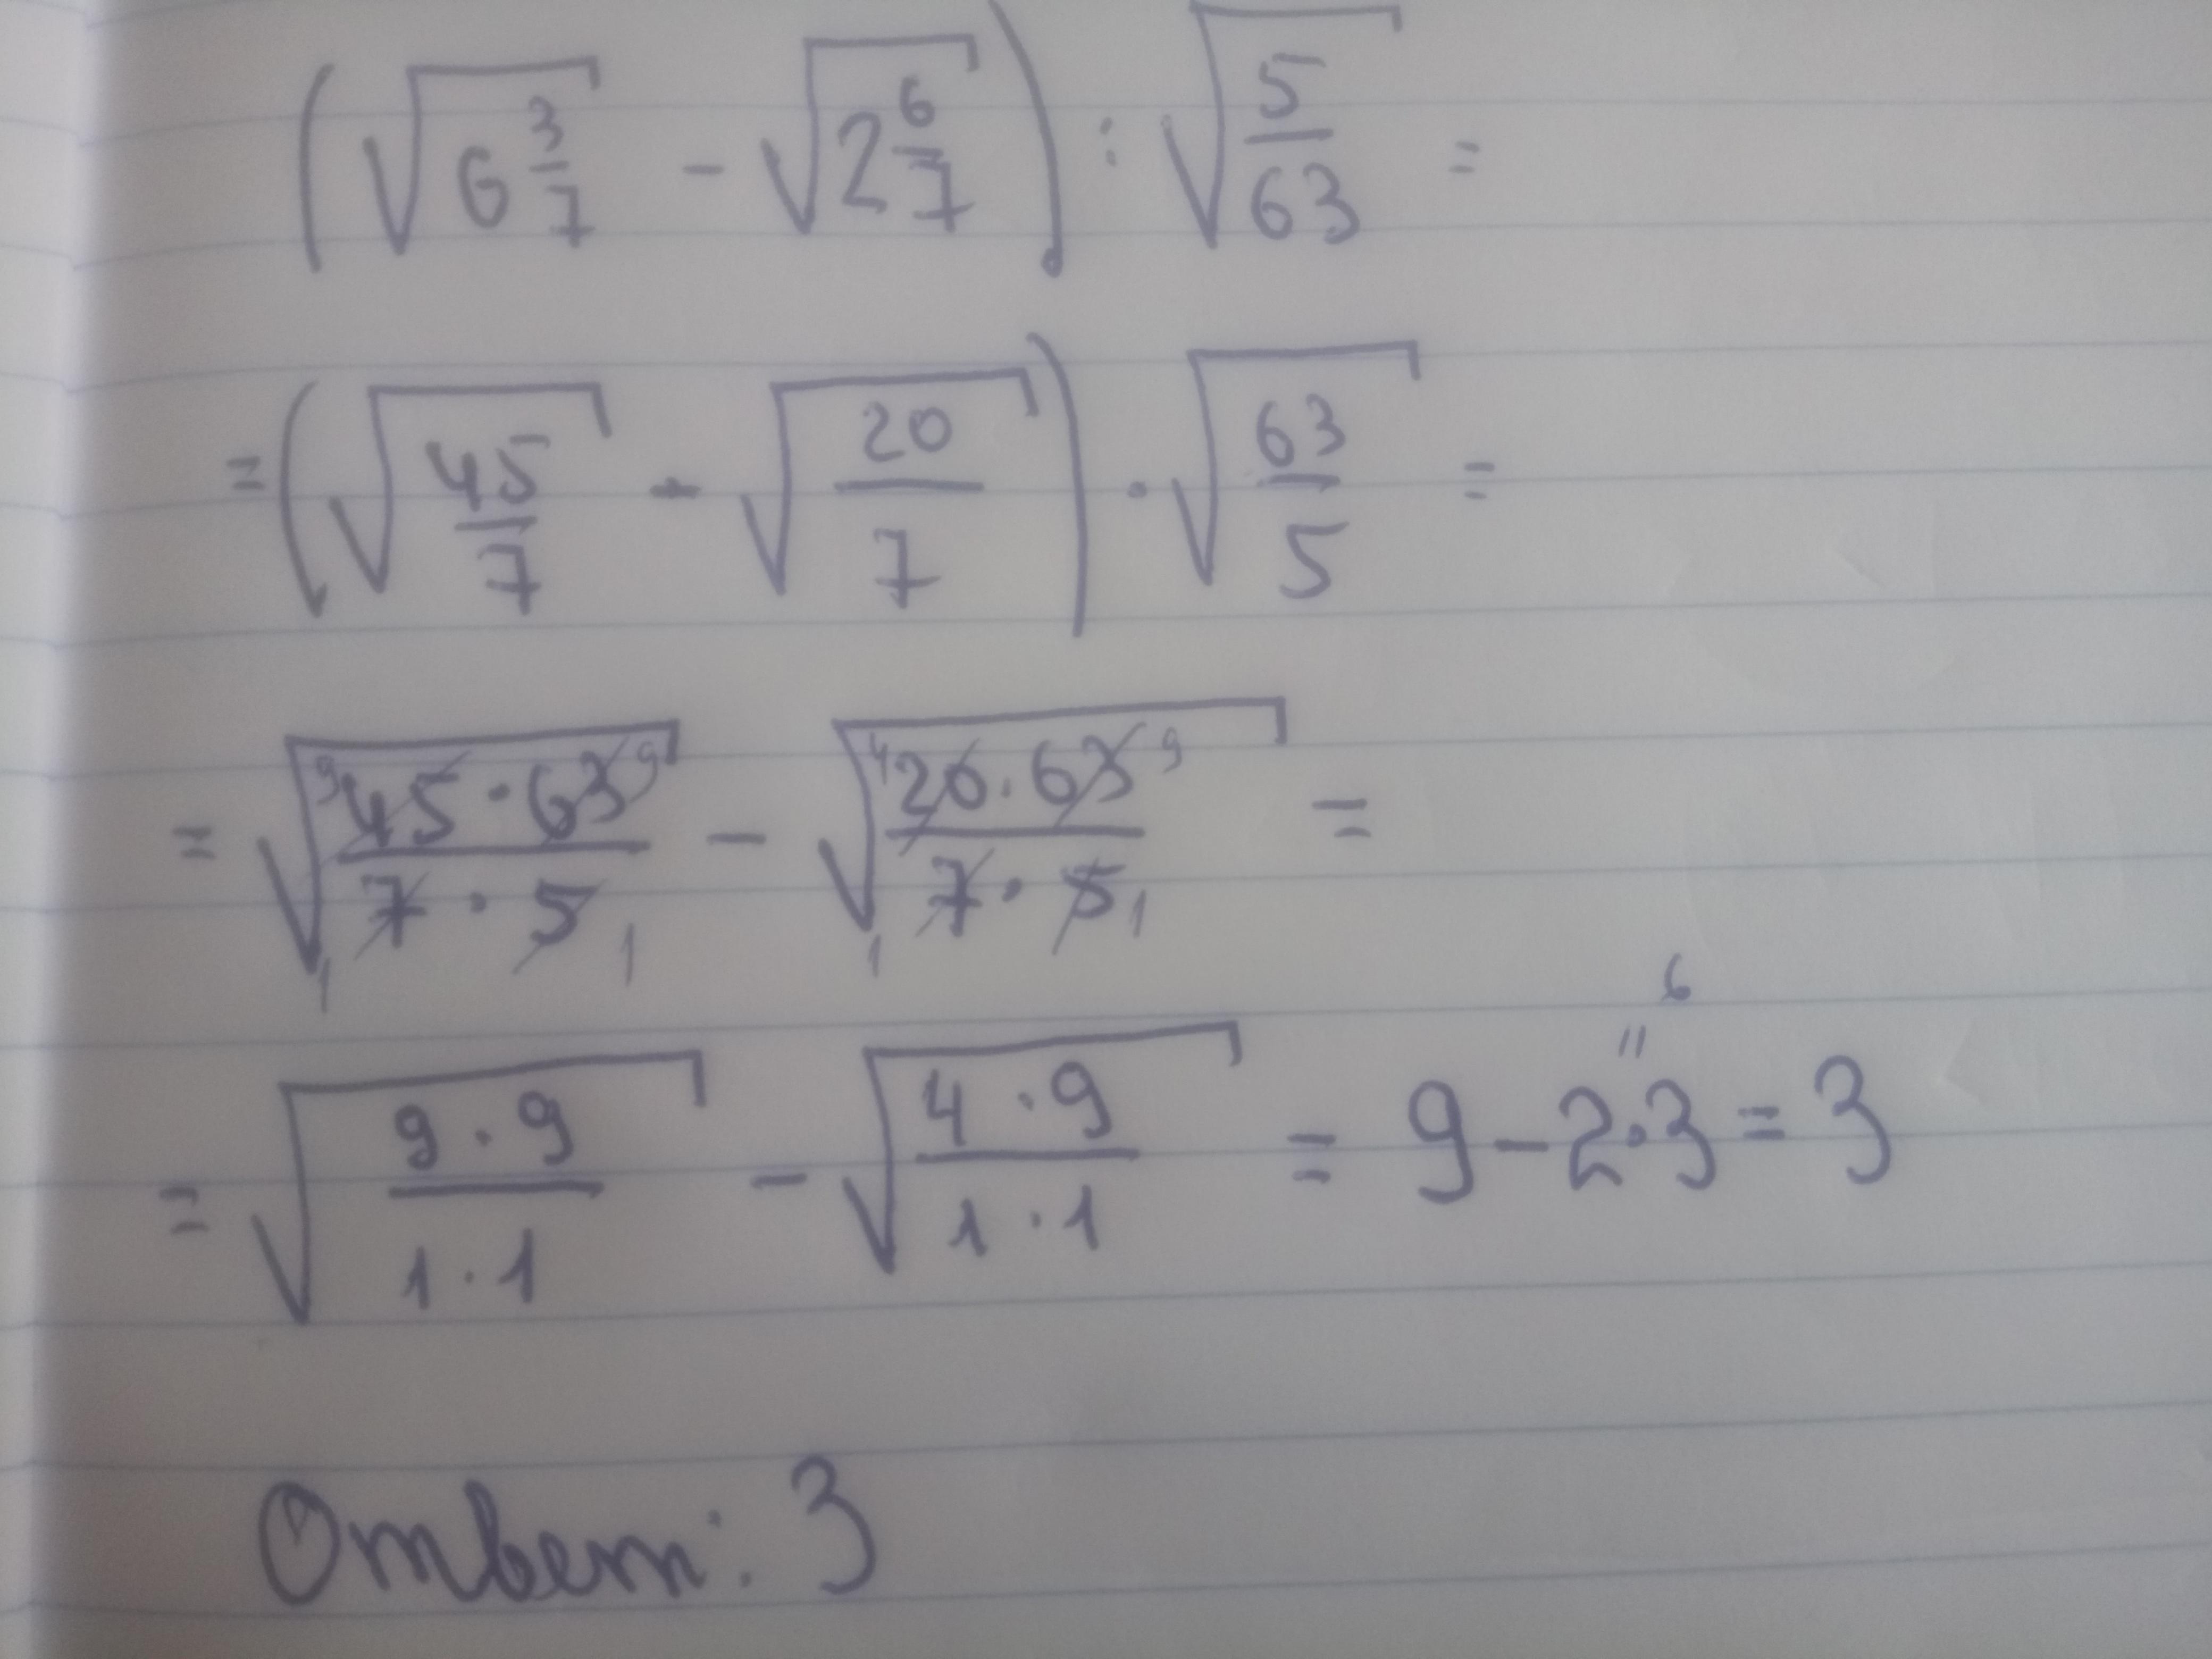 (√(6 3/7) - √(2 6/7)) : √(5/63) =
= (√(45/7) - √(20/7)) · √(63/5) =
= √((45·63)/(7·5)) - √((20·63)/(7·5)) =
= √((9·9)/(1·1)) - √((4·9)/(1·1)) = 9 - 2·3 = 3
Ответ: 3